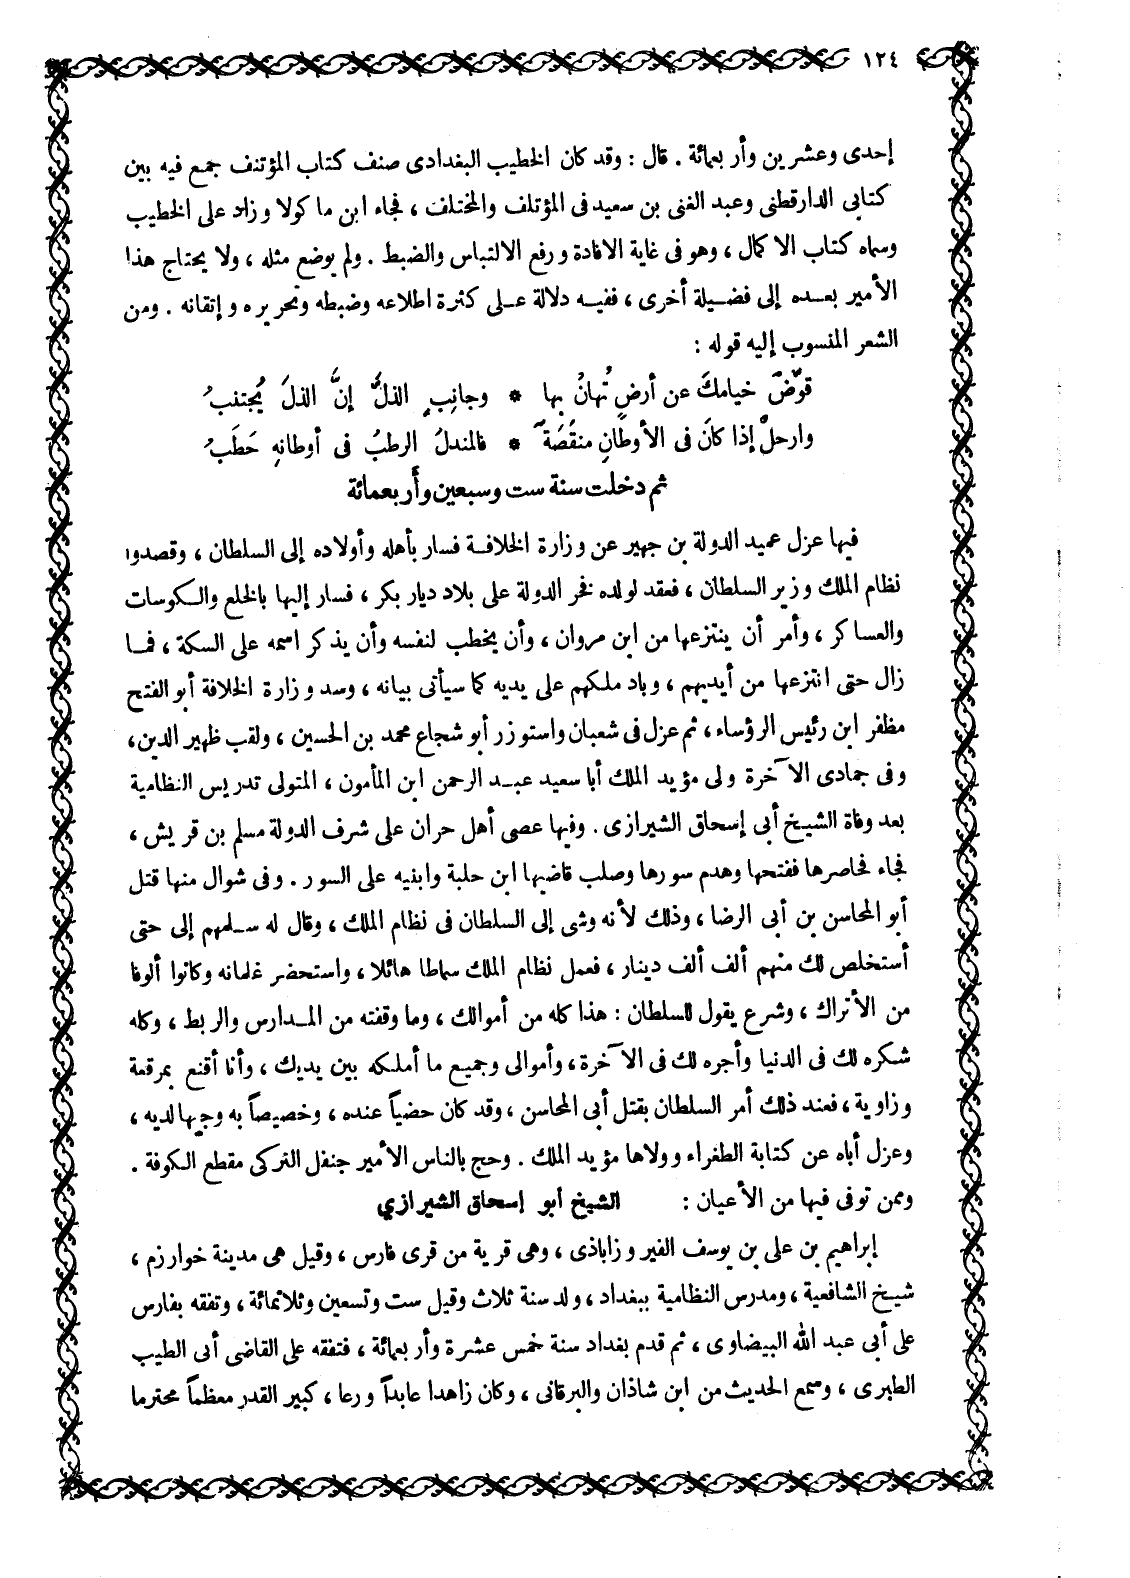 ١٢٤
إحدى وعشرين وأربعمائة . قال : وقد كان الخطيب البغدادى صنف كتاب المؤتنف جمع فيه بين
كتابى الدارقطنى وعبد الغنى بن سعيد فى المؤتلف والمختلف ، فجاء ابن ماكولا وزاد على الخطيب
وسماه كتاب الاكمال ، وهو فى غاية الافادة ورفع الالتباس والضبط . ولم يوضع مثله ، ولا يحتاج هذا
الأمير بعده إلى فضيلة أخرى ، ففيه دلالة على كثرة اطلاعه وضبطه وتحريره وإتقانه . ومن
الشعر المنسوب إليه قوله :
قوِّضْ خيامكَ عن أرضٍ تُهانُ بها * وجانِبِ الذلَّ إنَّ الذلَ يُجتنبُ
وارحلْ إذا كانَ فى الأوطانِ منقَصَةٌ * فالمندلُ الرطبُ فى أوطانهِ حَطَبُ
ثم دخلت سنة ست وسبعين وأربعمائة
فيها عزل عميد الدولة بن جهير عن وزارة الخلافة فسار بأهله وأولاده إلى السلطان ، وقصدوا
نظام الملك وزير السلطان ، فعقد لولده فخر الدولة على بلاد ديار بكر ، فسار إليها بالخلع والكوسات
والعساكر ، وأمر أن ينتزعها من ابن مروان ، وأن يخطب لنفسه وأن يذكر اسمه على السكة ، فما
زال حتى انتزعها من أيديهم ، وباد ملكهم على يديه كما سيأتى بيانه ، وسد وزارة الخلافة أبو الفتح
مظفر ابن رئيس الرؤساء ، ثم عزل فى شعبان واستوزر أبو شجاع محمد بن الحسين ، ولقب ظهير الدين،
وفى جمادى الآخرة ولى مؤيد الملك أبا سعيد عبد الرحمن ابن المأمون ، المتولى تدريس النظامية
بعد وفاة الشيخ أبى إسحاق الشيرازى . وفيها عصى أهل حران على شرف الدولة مسلم بن قريش ،
فجاء فحاصرها ففتحها وهدم سورها وصلب قاضيها ابن حلبة وابنيه على السور . وفى شوال منها قتل
أبو المحاسن بن أبى الرضا ، وذلك لأنه وشى إلى السلطان فى نظام الملك ، وقال له سلمهم إلى حتى
أستخلص لك منهم ألف ألف دينار ، فعمل نظام الملك سماطا هائلا ، واستحضر غلمانه وكانوا ألوفا
من الأتراك ، وشرع يقول للسلطان : هذا كله من أموالك ، وما وقفته من المدارس والربط ، وكله
شكره لك فى الدنيا وأجره لك فى الآخرة ، وأموالى وجميع ما أملكه بين يديك ، وأنا أقنع بمرقعة
وزاوية ، فعند ذلك أمر السلطان بقتل أبى المحاسن ، وقد كان حضياً عنده ، وخصيصاً به وجيها لديه ،
وعزل أباه عن كتابة الطغراء وولاها مؤيد الملك . وحج بالناس الأمير جنفل التركى مقطع الكوفة .
وممن توفى فيها من الأعيان : الشيخ أبو إسحاق الشيرازي
إبراهيم بن على بن يوسف الفيروزاباذى ، وهى قرية من قرى فارس ، وقيل هى مدينة خوارزم ،
شيخ الشافعية ، ومدرس النظامية ببغداد ، ولد سنة ثلاث وقيل ست وتسعين وثلاثمائة ، وتفقه بفارس
على أبى عبد الله البيضاوى ، ثم قدم بغداد سنة خمس عشرة وأربعمائة ، فتفقه على القاضى أبى الطيب
الطبرى ، وسمع الحديث من ابن شاذان والبرقانى ، وكان زاهدا عابداً ورعا ، كبير القدر معظماً محترما